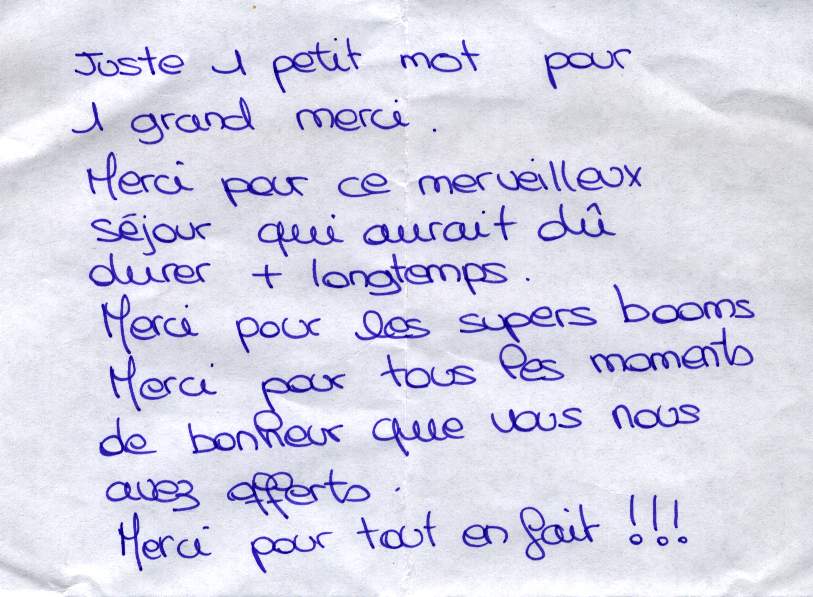 Juste 1 petit mot pour
1 grand merci.
Merci pour ce merveilleux
séjour qui aurait dû
durer + longtemps.
Merci pour les supers booms
Merci pour tous les moments
de bonheur que vous nous
avez offerts.
Merci pour tout en fait !!!